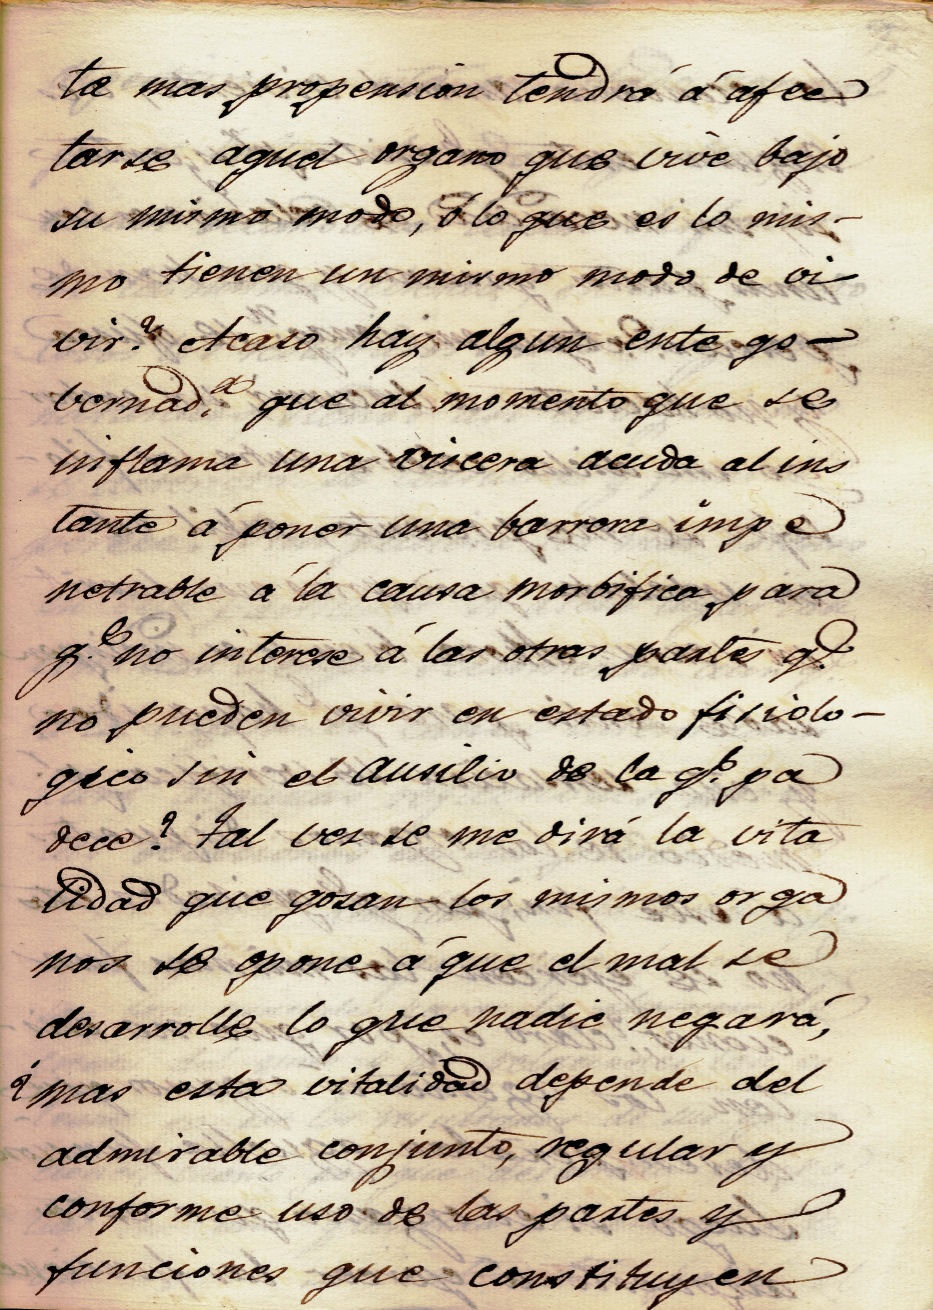 ta mas propension tendrá á afec
tarse aquel organo que vive bajo
su mismo modo, ó lo que es lo mis-
mo tienen un mismo modo de vi-
vir? Acaso hay algun ente go-
bernad.or que al momento que se
inflama una viscera acuda al ins
tante á poner una barrera impe
netrable á la causa morbifica para
q.e no interese á las otras partes q.e
no pueden vivir en estado fisiolo-
gico sin el ausilio de la q.e pa
dece? Tal ves se me dirá la vita
lidad que gosan los mismos orga
nos se opone á que el mal se
desarrolle lo que nadie negará,
¿mas esta vitalidad depende del
admirable conjunto, regular y
conforme uso de las partes y
funciones que constituyen